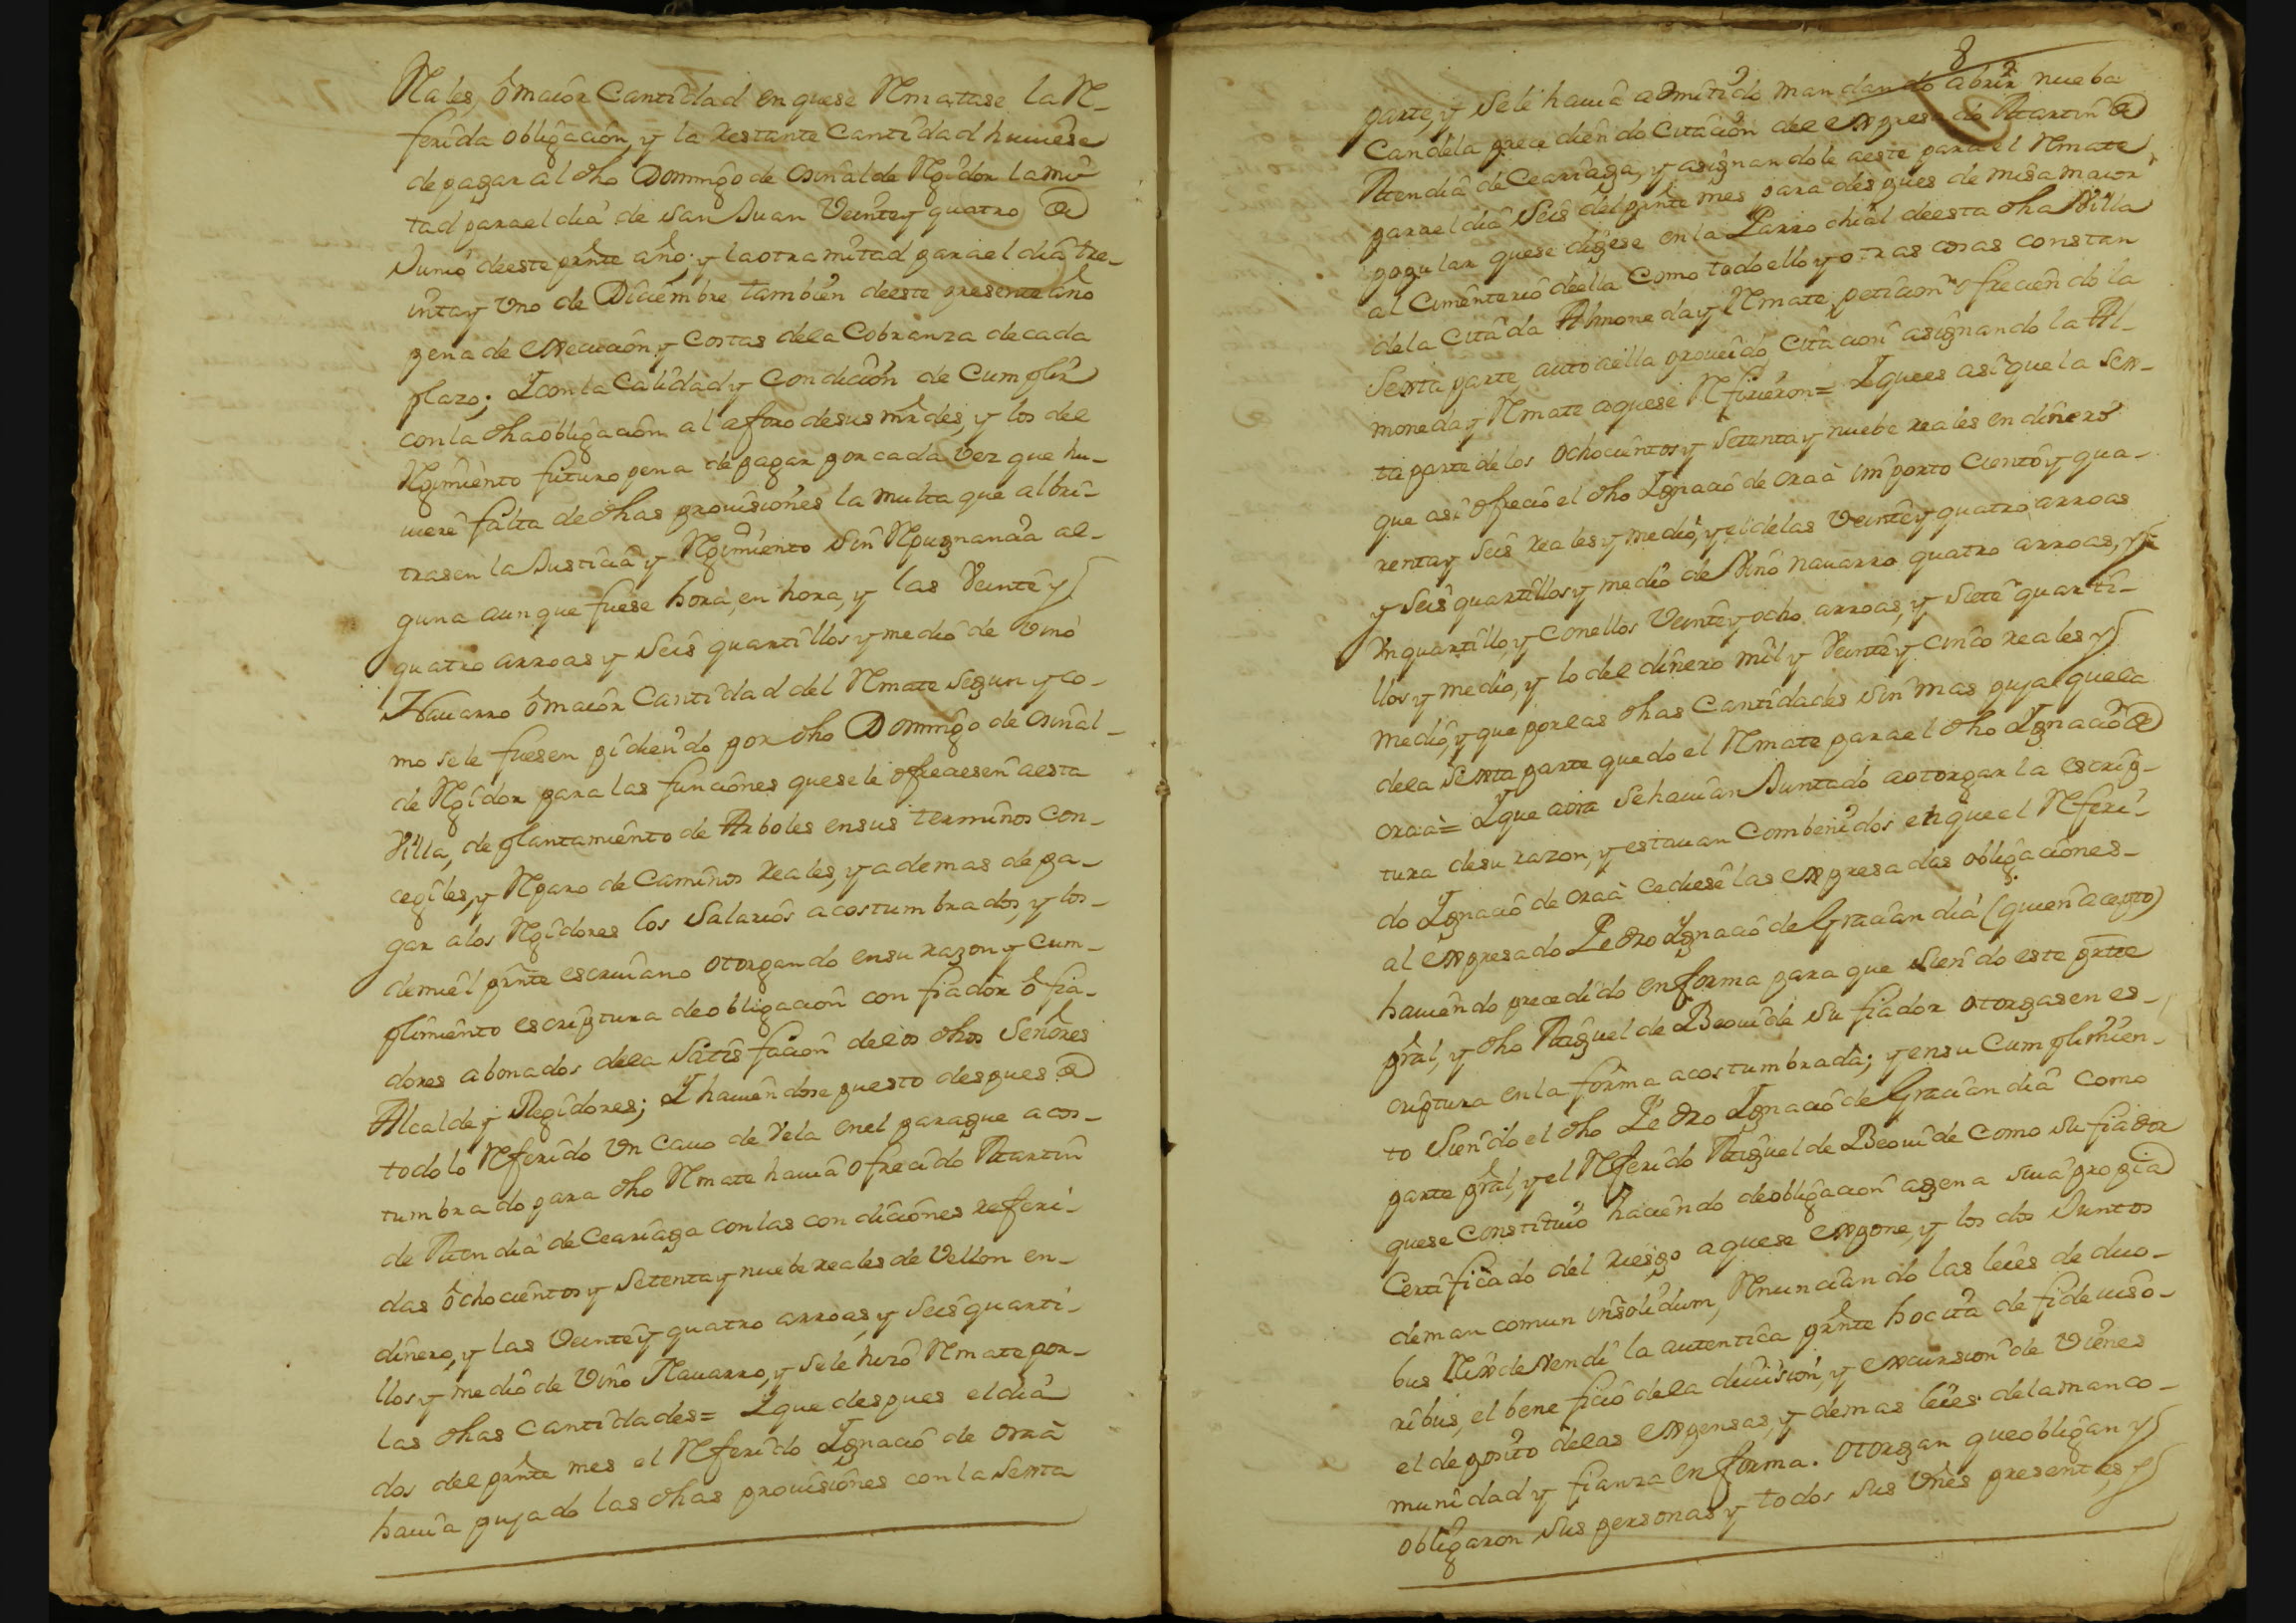 Rales, ô maior Cantidad en quese Rmatase la R-
ferida obligacion, y la restante Cantidad huuiese
de pagar al dho Domingo de Osinalde Rgidor la mi-
tad para el dia de San Juan Veinte y quatro de
Junio de este prnte año; y la otra mitad para el dia tre-
inta y Uno de Diciembre tambien de este presente año
pena de execucion, y Costas de la Cobranza de cada
plazo; Y con la Calidad y Condicion de Cumplir
con la dha obligacion al aforo de sus mrdes, y los del
Rgimiento futuro pena de pagar por cada Vez que hu-
uiere falta de dhas prouisiones la multa que albri-
trasen la Justicia y Rgimiento Sin Rpugnancia al-
guna aunque fuese hora, en hora, y las Veinte y
quatro arroas y Seis quartillos y medio de Vino
Nauarro ô maior Cantidad del Rmate segun y co-
mo se le fuesen pidiendo por dho Domingo de Osinal-
de Rgidor para las funciones que se le ofreciesen a esta
Villa, de plantamiento de Arboles en sus terminos con-
cegiles, y Rparo de Caminos Reales, y ademas de pa-
gar a los Rgidores los Salarios acostumbrados, y los
de mi el prnte escriuano otorgando en su razon y cum-
plimiento escriptura de obligacion con fiador ô fia-
dores abonados de la Satisfacion de los dhos Señores
Alcalde y Regidores; Y hauiendose puesto despues de
todo lo Rferido Un Cauo de Vela en el parague acos-
tumbrado para dho Rmate hauia ofrecido Martin
de Mendia de Cearaga con las condiciones referi-
das ôchocientos y Setenta y nuebe reales de Vellon en
dinero, y las Veinte y quatro arroas y Seis quarti-
llos y medio de Vino Nauarro, y se le hizo Rmate por
las dhas Cantidades= Y que despues el dia
dos del prnte mes el Rferido Ygnacio de oraà
hauia pujado las dhas prouisiones con la Sexta
8
parte, y se le hauia admitido mandando abrir nueba
Candela precediendo Citacion del expresado Martin de
Mendia de Cearaga, y asignandole a este para el Rmate
para el dia Seis del prnte mes para despues de misa maior
popular que se digese en la Parrochial de esta dha Villa
al Cimenterio de ella Como todo ello y otras cosas constan
de la Citada Almoneda y Rmate, peticion ofreciendo la
Sexta parte, auto a ella proueido, Citacion asignando la Al-
moneda y Rmate a que se Rfirieron= Y que es asi que la Sex-
ta parte de los ochocientos y Setenta y nuebe reales en dinero
que asi ofrecio el dho Ygnacio de oraà importo Ciento y qua-
renta y Seis reales y medio, y el de las Veinte y quatro arroas
y Seis quartillos y medio de Vino nauarro quatro arroas, y
Un quartillo, y con ellos Veinte y ocho arroas, y Siete quarti-
llos y medio, y lo del dinero mil y Veinte y cinco reales y
medio, y que por las dhas Cantidades sin mas puja que la
de la Sexta parte quedo el Rmate para el dho Ygnacio de
oraà= Y que aora se hauian Juntado a otorgar la escrip-
tura de su razon, y estauan Combenidos en que el Rferi-
do Ygnacio de oraà Cediese las expresadas obligaciones
al expresado Pedro Ygnacio de Graciandia (quien acepto)
hauiendo precedido en forma para que siendo este prnte
pral, y dho Miguel de Beouide su fiador otorgasen es-
criptura en la forma acostumbrada; y en su Cumplimien-
to Siendo el dho Pedro Ygnacio de Graciandia Como
parte pral, y el Rferido Miguel de Beouide Como su fiador
que se constituio haciendo de obligacion agena Suia propia
Certificado del riesgo a que se expone, y los dos Juntos
de mancomun insolidum, Rnunciando las leies de duo-
bus Rex de Vendi la autentica prnte hocita de fideiuso-
ribus, el beneficio de la diuision, y excursion de Vienes
el deposito de las expensas, y demas leies de la manco-
munidad y fianza en forma. otorgan que obligan y
obligaron Sus personas y todos sus Vnes presentes, y